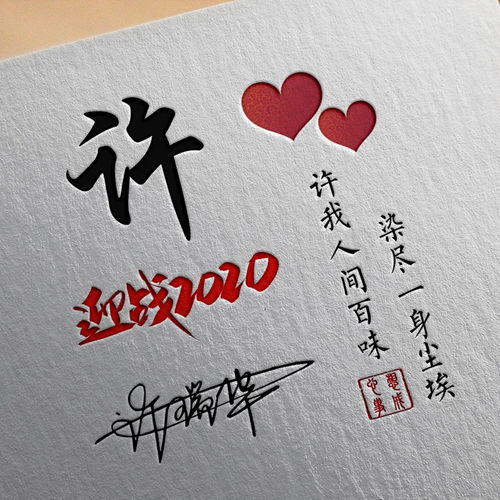 许
迎战2020
许瑞华
许我人间百味
染尽一身尘埃
心想事成